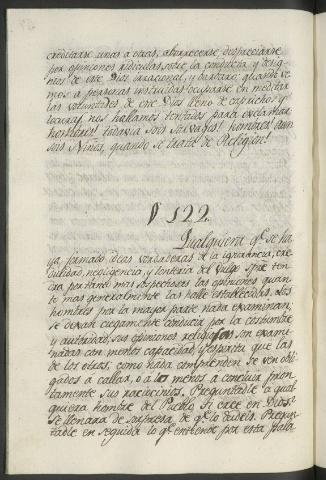 creditarse unas a otras, aborrecerse, despreciarse
por opiniones ridiculas sobre la conducta y desig-
nios de este Dios irracional, y barbaro; quando ve-
mos a personas instruidas ocuparse en meditar
las voluntades de este Dios lleno de caprichos y
locuras, nos hallamos tentados para exclamar
hombres! todavia sois salvages! hombres! aun
sois Niños, quando se trata de Religion!
§ 122.
Qualquiera qe. se ha-
ya formado ideas verdaderas de la ignorancia, cre-
dulidad, negligencia, y tonteria del Vulgo spre ten-
dra por tanto mas sospechosas las opiniones quan-
to mas generalmente las halle establecidas. Los
hombres por la mayor parte nada examinan;
se dexan ciegamente conducir por la costumbre
y autoridad, sus opiniones religiosas son exami-
nadas con menos capacidad, y espiritu que las
de los otros, como nada comprenden se ven obli-
gados a callar, o a lo menos a concluir pron-
tamente sus raciocinios. Preguntadle a qual
quiera hombre del Pueblo si cree en Dios?
Se llenara de sorpresa de qe. lo dudeis. Pregun-
tadle en seguida lo qe. entiende por esta pala